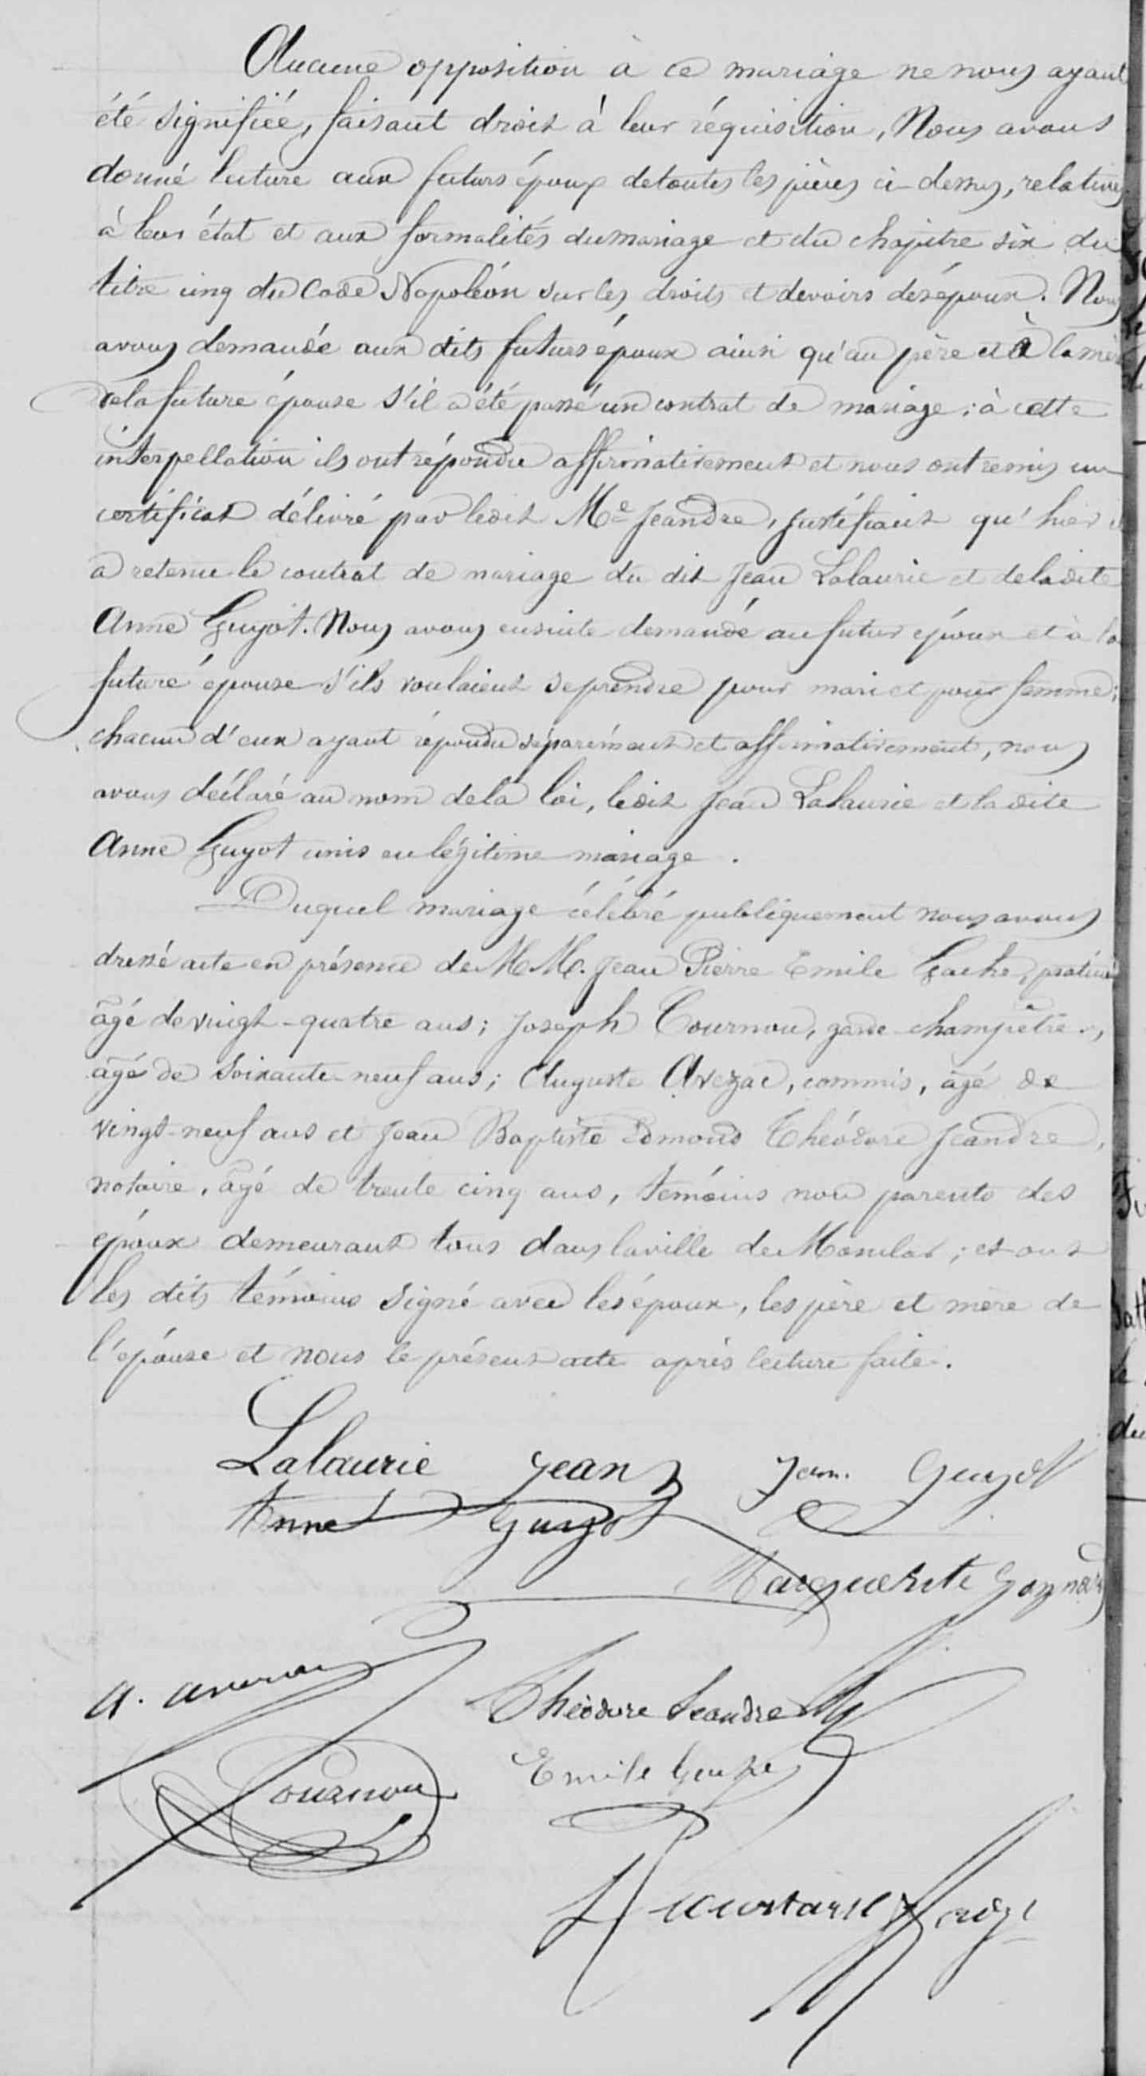 Aucune opposition à ce mariage ne nous ayant
été signifiée, faisant droit à leur réquisition, Nous avons
donné lecture aux futurs époux de toutes les pièces ci-dessus, relatives
à leur état et aux formalités du mariage et du chapitre six du
titre cinq du Code Napoléon sur les droits et devoirs des époux. Nous
avons demandé aux dits futurs époux ainsi qu'au père et à la mère
de la future épouse s'il a été passé un contrat de mariage ; à cette
interpellation ils ont répondu affirmativement et nous ont remis un
certificat délivré par ledit Me Jeandre, justifiant qu'hier il
a retenu le contrat de mariage du dit Jean Lalaurie et de ladite
Anne Guyot. Nous avons ensuite demandé au futur époux et à la
future épouse s'ils voulaient se prendre pour mari et pour femme ;
chacun d'eux ayant répondu séparément et affirmativement, nous
avons déclaré au nom de la loi, ledit Jean Lalaurie et ladite
Anne Guyot unis en légitime mariage.
Duquel mariage célébré publiquement nous avons
dressé acte en présence de MM. Jean Pierre Emile Gache, praticien
âgé de vingt-quatre ans ; Joseph Tournou, garde-champêtre,
âgé de soixante-neuf ans ; Auguste Avezac, commis, âgé de
vingt-neuf ans et Jean Baptiste Edmond Théodore Jeandre,
notaire, âgé de trente cinq ans, témoins non parents des
époux demeurant tous dans la ville de ; et ont
les dits témoins signé avec les époux, les père et mère de
l'épouse et nous le présent acte après lecture faite.
Lalaurie Jean Jean Guyot
Anne Guyot
Marguerite
A.
Théodore Jeandre
Tournou Emile